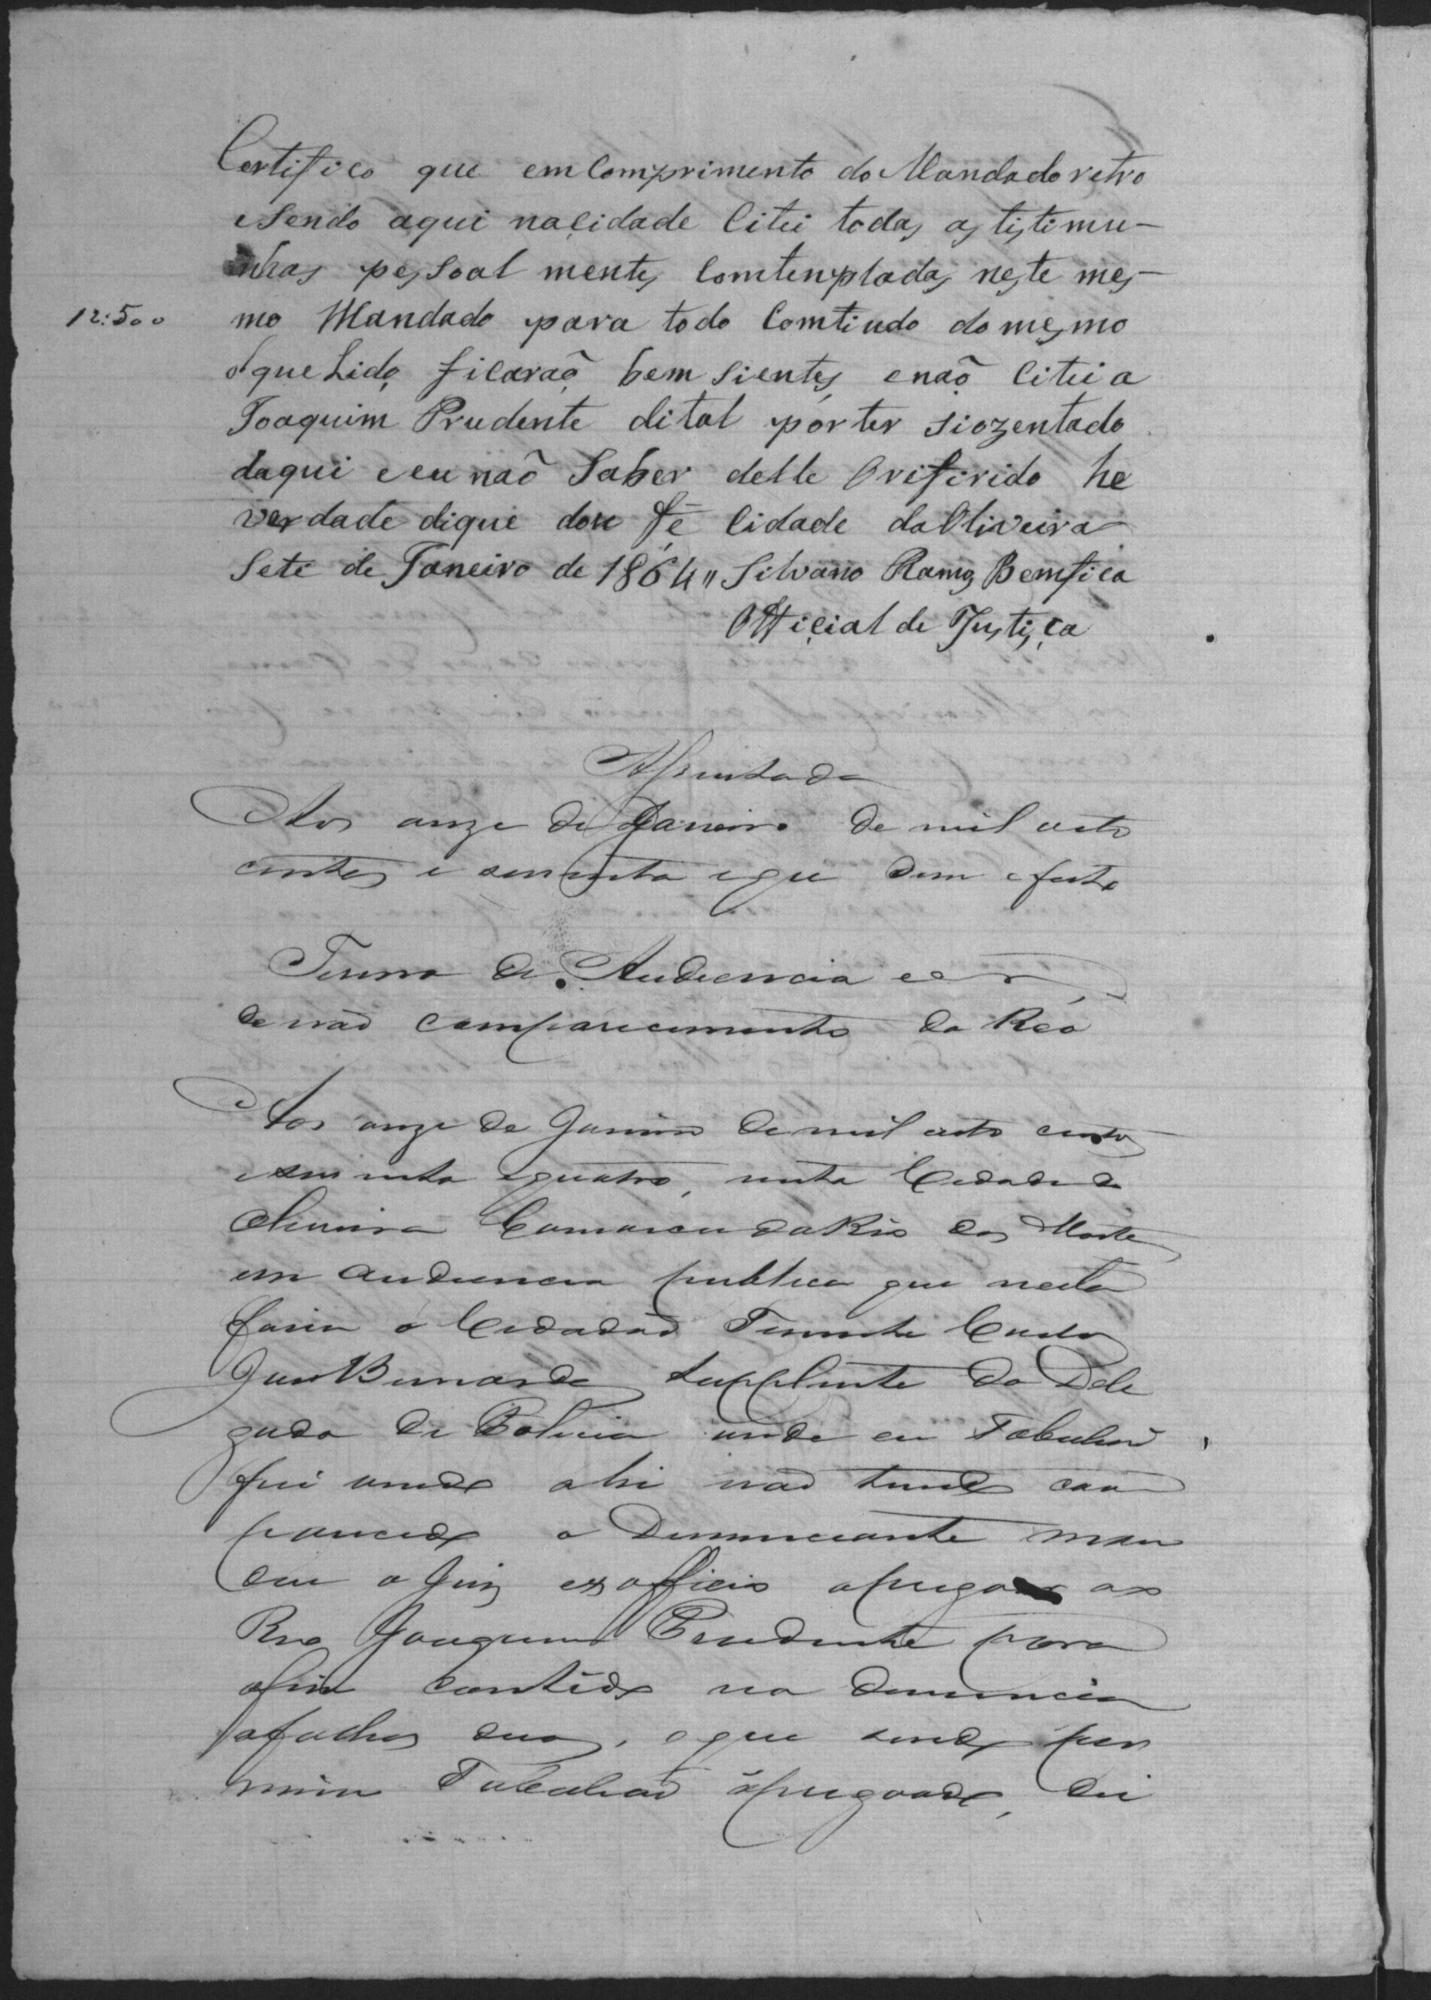 Certifico que em Comprimento do Mandado retro
e Sendo aqui na çidade Citei todas as tistimu-
nhas pessoal mentes Comtenpladas neste mes-
12:500
mo Mandado para todo Comtiudo do mesmo
o que Lido ficaraõ bem sientes, e naõ Citei a
Joaquim Prudente dital por ter siozentado
daqui e eu naõ Saber delle O rifirido he
verdade dique dou fé Cidade da Oliveira
Sete de Janeiro de 1864 " Silvano Ramos Bemfica
Official de Justiça
Ajuntada
Aos onze de Janeiro de mil oito
centos e sessenta e que dem e fasto
Termo de Audiencia e
de não comparecimento do Reo
Aos onze de Janeiro de mil oito centos
e sessenta e quatro, nesta Cidade da
Oliveira Comarca do Rio das Mortes
em audiencia publica que nesta
fasia o Cidadão Tenente
Bernardes supplente do Dele
gado de Policia onde eu Tabelião
fui vindo ahi não tendo com
parecido o Denunciante man
dou o Juiz ex officio apregoar ao
Reo Joaquim Prudente para
o fim contido na denuncia
a folhas duas, o que sendo por
mim Tabelião apregoado, dei